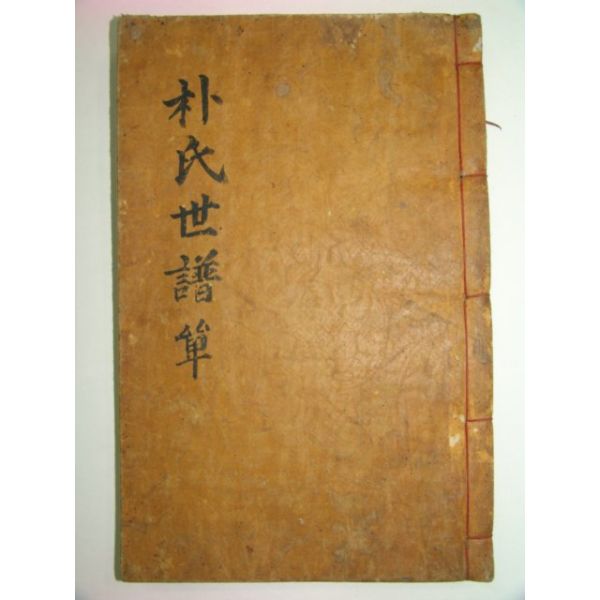 朴氏世譜單